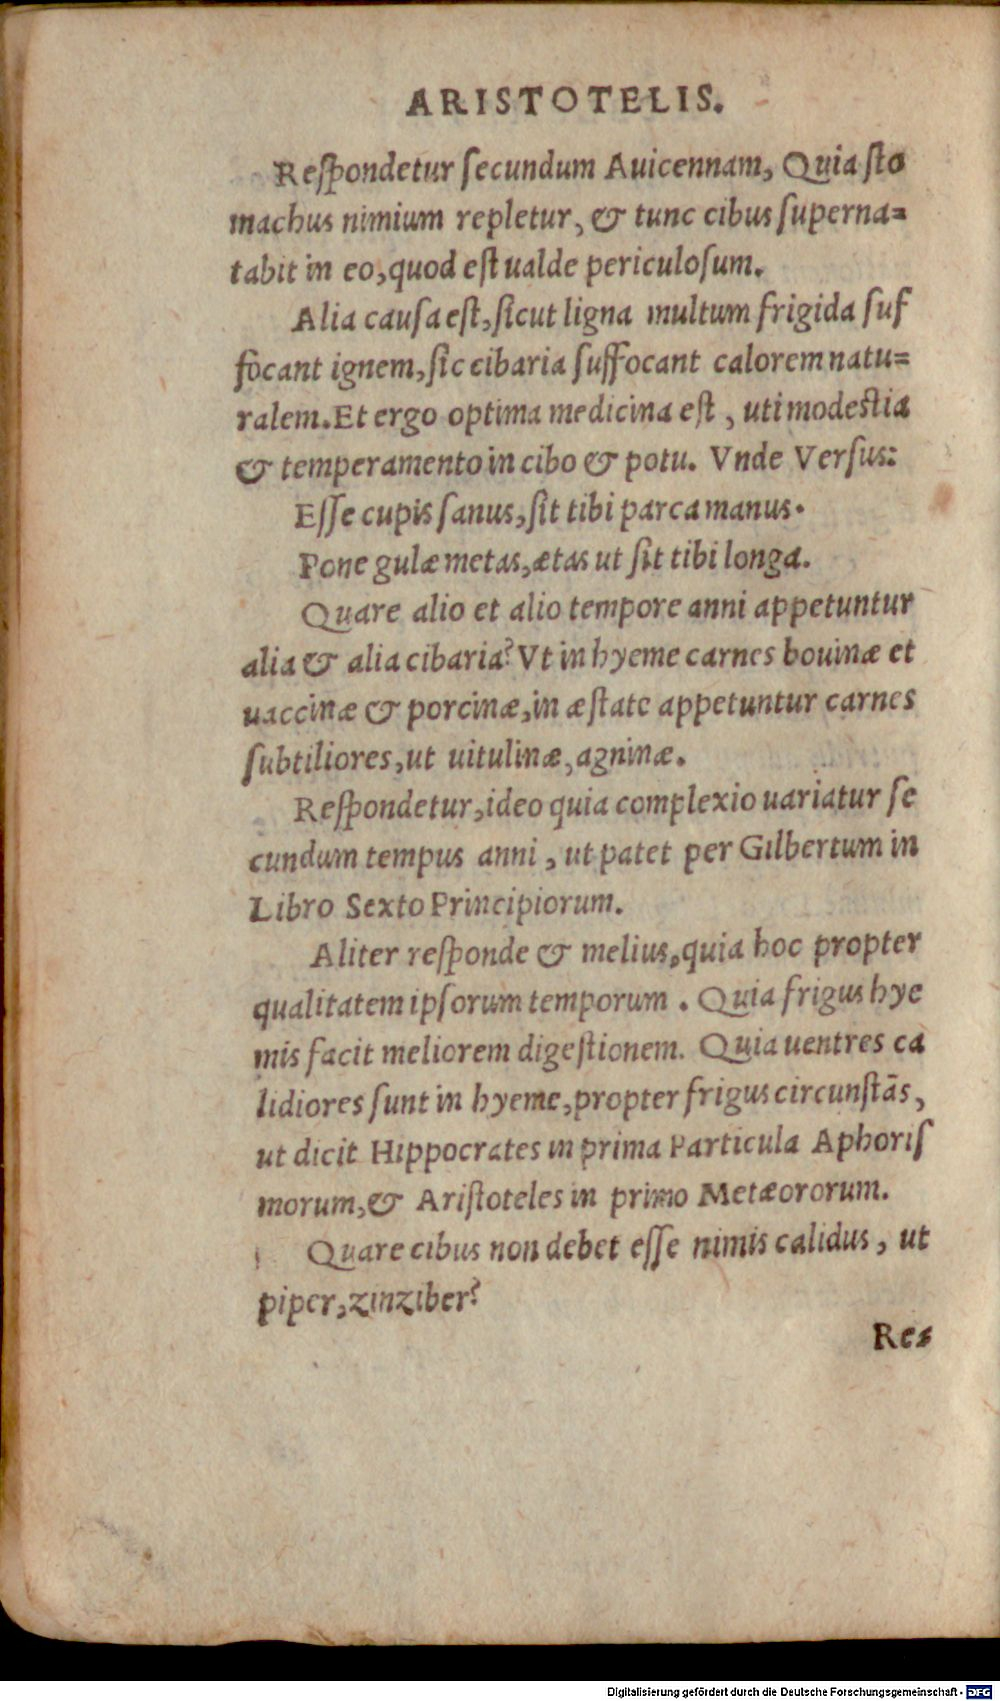 ARISTOTELIS.
Reſpondetur ſecundum Auicennam, Quia ſto
machus nimium repletur, & tunc cibus ſuperna=
tabit in eo, quod eſt ualde periculoſum.
Alia cauſa eſt, ſicut ligna multum frigida ſuf
focant ignem, ſic cibaria ſuffocant calorem natu=
ralem. Et ergo optima medicina eſt, uti modeſtia
& temperamento in cibo & potu. Vnde Verſus:
Eſſe cupis ſanus, ſit tibi parca manus.
Pone gulæ metas, ætas ut ſit tibi longa.
Quare alio et alio tempore anni appetuntur
alia & alia cibaria? Vt in hyeme carnes bouinæ et
uaccinæ & porcinæ, in æſtate appetuntur carnes
ſubtiliores, ut uitulinæ, agninæ.
Reſpondetur, ideo quia complexio uariatur ſe
cundum tempus anni, ut patet per Gilbertum in
Libro Sexto Principiorum.
Aliter reſponde & melius, quia hoc propter
qualitatem ipſorum temporum. Quia frigus hye
mis facit meliorem digeſtionem. Quia uentres ca
lidiores ſunt in hyeme, propter frigus circunſtãs,
ut dicit Hippocrates in prima Particula Aphoriſ
morum, & Ariſtoteles in primo Metæororum.
Quare cibus non debet eſſe nimis calidus, ut
piper, zinziber?
Reſ=
Digitalisierung gefördert durch die Deutsche Forschungsgemeinschaft - DFG